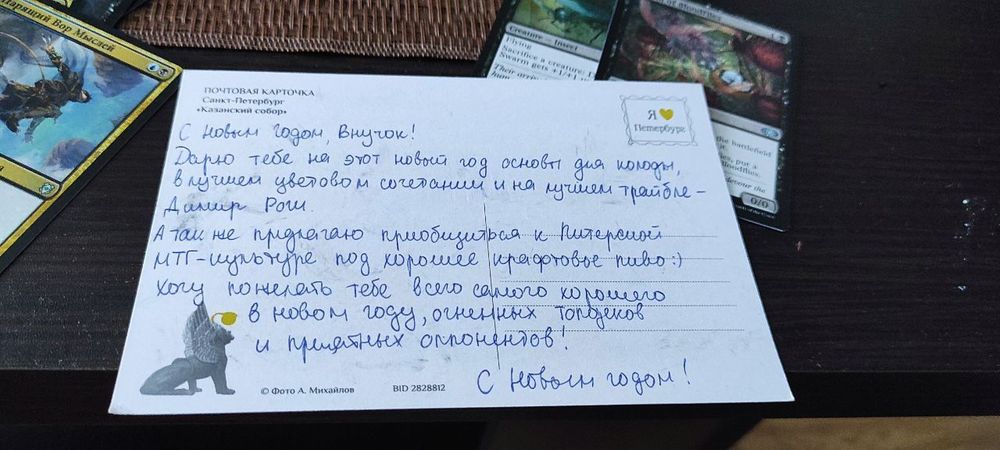 Парящий Вор Мыслей
Creature — Insect
Flying
Sacrifice a creature:
Swarm gets +1/+1
Their
of Bloodflies
1
the battlefield
put a
devour the
0/0
ПОЧТОВАЯ КАРТОЧКА
Санкт-Петербург
«Казанский собор»
Я
Петербург
С Новым годом, Внучок!
Дарю тебе на этот новый год основы для колоды,
в лучшем цветовом сочетании и на лучшем трайбле –
Димир Роги
А так же предлагаю приобщиться к Питерской
МТГ-культуре под хорошее крафтовое пиво:)
Хочу пожелать тебе всего самого хорошего
в новом году, огненных топдеков
и приятных оппонентов!
С Новым годом!
© Фото А. Михайлов
BID 2828812